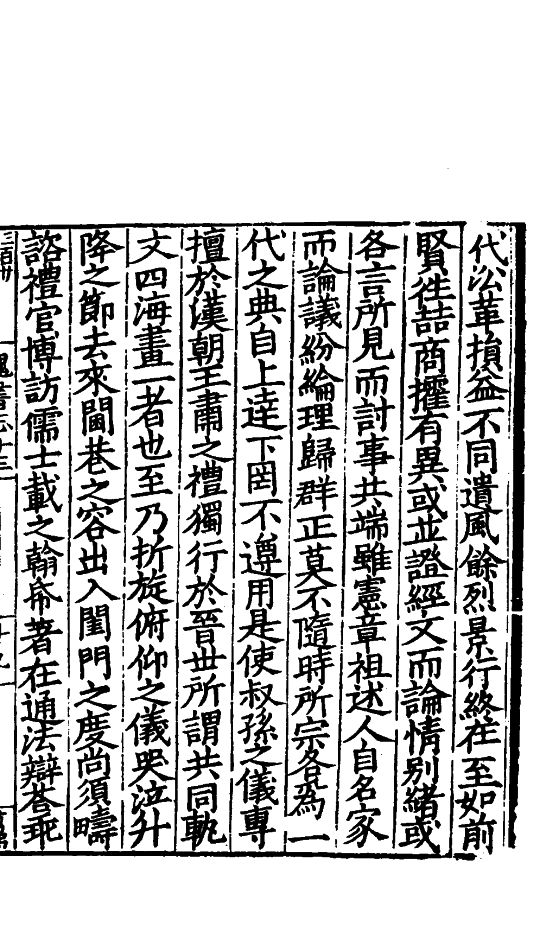 代㳂革損益不同遺風餘烈景行終在至如前
賢徃喆商搉有異或並證經文而論情别緒或
各言所見而討事共端雖憲章祖述人自名家
而論議紛綸理歸群正莫不隨時所宗各為一
代之典自上逹下罔不遵用是使叔孫之儀專
擅於漢朝王肅之禮獨行於晉世所謂共同軌
文四海畫一者也至乃折旋俯仰之儀哭泣升
降之節去來閫巷之容出入閨門之度尚須疇
諮禮官博訪儒士載之翰帋著在通法辯荅乖
三百廿
魏書志十三